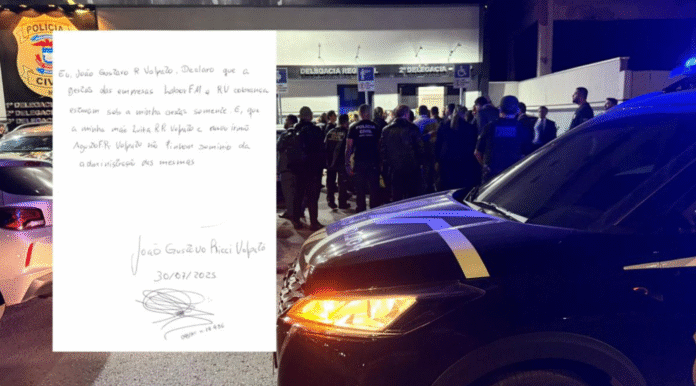 POLÍCIA
CIVIL
DELEGACIA REG
2ª DELEGACIA
Eu, João Gustavo R Volpato, Declaro que a
das empresas Labor FM e RV cobrança
estavam sob a minha somente E, que
a minha mãe Luiza RR Volpato e meu irmão
Augusto FR Volpato não Tinham domínio da
administração das mesmas
João Gustavo Ricci Volpato
30/07/2025